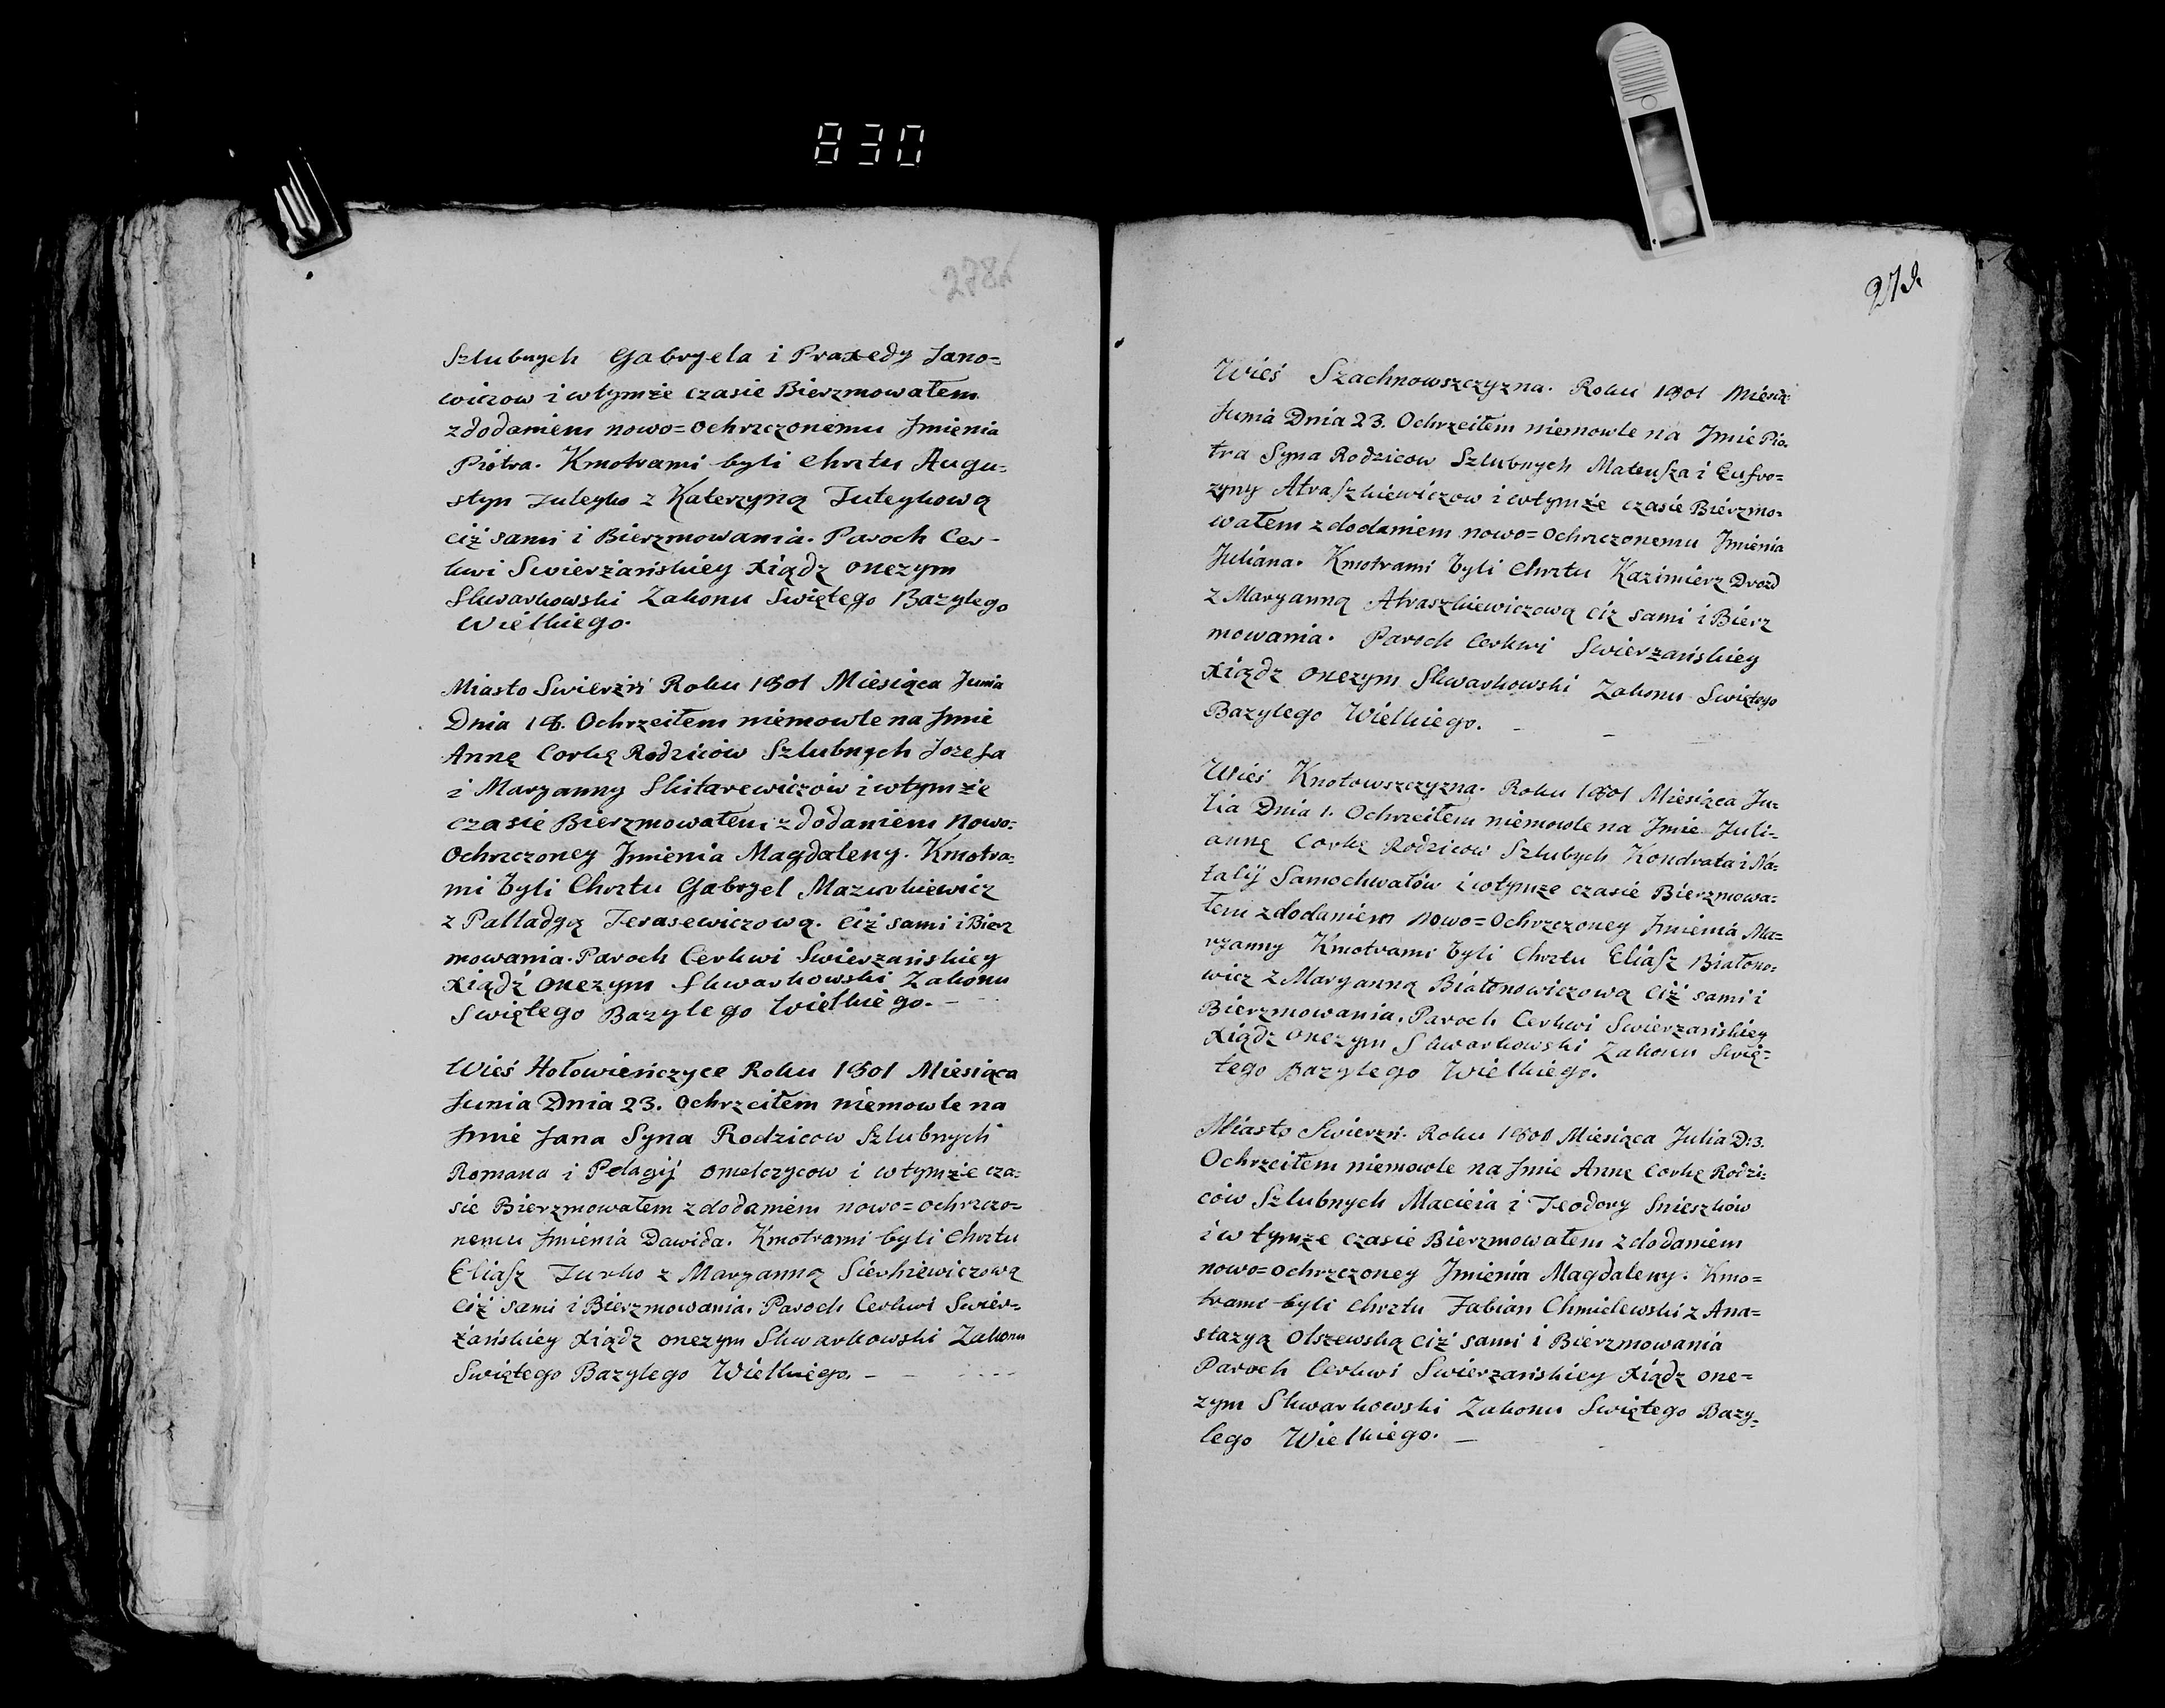 830
Szlubnych Gabryela i Praxedy Jano=
wiczow i wtymże czasie Bierzmowałem
zdodaniem nowo=ochrzczonemu Jmienia
Piotra. Kmotrami byli Chrztu Augu=
styn Juleyko z Katerzyną Juteykową
ciż sami i Bierzmowania. Paroch Cer-
kwi Swierżańskiey Xiądz Onezym
Skwarkowski Zakonu Swiętego Bazylego
Wielkiego.
Miasto Swierżń Roku 1801 Miesiąca Junia
Dnia 18. Ochrzciłem niemowle na Jmie
Annę Corkę Rodziców Szlubnych Jozefa
i Maryanny Skitarewiczów i wtymże
czasie Bierzmowałem zdodaniem Nowo=
Ochrzczoney Jmienia Magdaleny. Kmotra=
mi byli Chrztu Gabryel Mazurkiewicz
z Palladyą Terasewiczową. Ciż sami i Bierz
mowania. Paroch Cerkwi Swierzańskiey
Xiądź Onezym Skwarkowski Zakonu
Swiętego Bazylego Wielkiego. -
Wieś Hołowieńczyce Roku 1801 Miesiąca
Junia Dnia 23. Ochrzciłem niemowle na
Jmie Jana Syna Rodzicow Szlubnych
Romana i Pelagij Omelczycow i wtymże cza=
sie Bierzmowałem zdodaniem nowo=ochrzczo=
nemu Jmienia Dawida. Kmotrami byli Chrztu
Eliasz Jurko z Maryanną Sierkiewiczową
Ciż sami i Bierzmowania. Paroch Cerkwi Swier=
żańskiey Xiądz Onezym Skwarkowski Zakonu
Swiętego Bazylego Wielkiego. -
Wieś Szachnowszczyzna. Roku 1801 Miesią:
Junia Dnia 23. Ochrzciłem niemowle na Jmie Pio=
tra Syna Rodzicow Szlubnych Mateusza i Eufro=
zyny Atraszkiewiczow i wtymże czasie Bierzmo=
wałem zdodaniem nowo=ochrzczonemu Jmienia
Juliana. Kmotrami byli Chrztu Kazimierz Drozd
z Maryanną Atraszkiewiczową ciż sami i Bierz
mowania. Paroch Cerkwi Swierzańskiey
Xiądz Onezym Skwarkowski Zakonu Swiętego
Bazylego Wielkiego. -
Wieś Knotowszczyzna. Roku 1801 Miesiąca Ju=
lia Dnia 1. Ochrzciłem niemowle na Jmie Juli=
annę Corkę Rodzicow Szlubych Kondrata i Na=
talij Samochwałów i wtymze czasie Bierzmowa=
łem zdodaniem Nowo=Ochrzczoney Jmienia Ma=
ryanny Kmotrami byli Chrztu Eliasz Białono=
wicz z Maryanną Białonowiczową Ciż sami i
Bierzmowania. Paroch Cerkwi Swierzańskiey
Xiądz Onezym Skwarkowski Zakonu Swię=
tego Bazylego Wielkiego.
Miasto Swierzń. Roku 1801 Miesiąca Julia D: 3.
Ochrzciłem niemowle na Jmie Annę Corkę Rodzi=
ców Szlubnych Macieia i Teodory Snieszków
i w tymze czasie Bierzmowałem zdodaniem
nowo=ochrzczoney Jmienia Magdaleny. Kmo=
trami byli Chrztu Fabian Chmielewski z Ana=
stazyą Olszewską Ciż sami i Bierzmowania
Paroch Cerkwi Swierzańskiey Xiądz One=
zym Skwarkowski Zakonu Swiętego Bazy=
lego Wielkiego. -